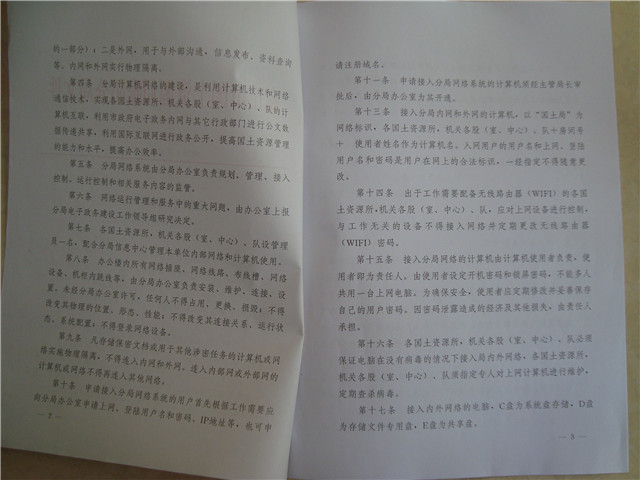 的一部分）；二是外网，用于与外部沟通，信息发布、资料查询
等。内网和外网实行物理隔离。
第四条 分局计算机网络的建设，是利用计算机技术和网络
通信技术，实现各国土资源所、机关各股（室、中心）、队的计
算机互联，利用市政府电子政务内网与其它行政部门进行公文数
据传递共享，利用国际互联网进行政务公开，提高国土资源管理
的能力和水平，提高办公效率。
第五条 分局网络系统由分局办公室负责规划、管理、接入
控制、运行控制和相关服务内容的监管。
第六条 网络运行管理和服务中的重大问题，由办公室上报
分局电子政务建设工作领导组研究决定。
第七条 各国土资源所，机关各股（室、中心）、队设管理
员一名，配合分局信息中心管理本单位内部网络和计算机使用。
第八条 办公楼内所有网络插座、网络线路、布线槽、网络
设备、机柜内跳线等，由分局办公室负责安装、维护、连接、设
置。未经分局办公室许可，任何人不得占用、更换、损毁；不得
改变其物理的位置、形态、性能；不得改变其连接关系、运行状
态、系统配置；不得登录网络设备。
第九条 凡存储保密文档或用于其他涉密任务的计算机或网
络实施物理隔离，不得连入内网和外网。连入内部网或外部网的
计算机或网络不得再连入其他网络。
第十条 申请接入分局网络系统的用户首先根据工作需要应
向分局办公室申请上网、登陆用户名和密码、IP地址等，也可申
— 2 —
请注册域名。
第十一条 申请接入分局网络系统的计算机须经主管局长审
批后，由分局办公室为其开通。
第十三条 接入分局内网和外网的计算机，以“国土局”为
网络标识，各国土资源所，机关各股（室、中心）、队＋房间号
＋ 使用者姓名作为计算机名。入网用户的用户名和上网、登陆
用户名和密码是用户在网上的合法标识，一经指定不得随意更
改。
第十四条 由于工作需要配备无线路由器（WIFI）的各国
土资源所，机关各股（室、中心）、队，应对上网设备进行控制，
与工作无关的设备不得接入网络并定期更改无线路由器
（WIFI）密码。
第十五条 接入分局网络的计算机由计算机使用者负责，使
用者即为责任人。由使用者设定开机密码和锁屏密码，不能多人
共用一台上网电脑。为确保安全，使用者应定期修改并妥善保管
自己的用户密码。因密码泄露造成的经济及其他损失，由责任人
承担。
第十六条 各国土资源所，机关各股（室、中心）、队必须
保证电脑在没有病毒的情况下接入局内外网络，各国土资源所，
机关各股（室、中心）、队须指定专人对上网计算机进行维护，
定期查杀病毒。
第十七条 接入内外网络的电脑，C盘为系统盘存储，D盘
为存储文件专用盘，E盘为共享盘。
— 3 —